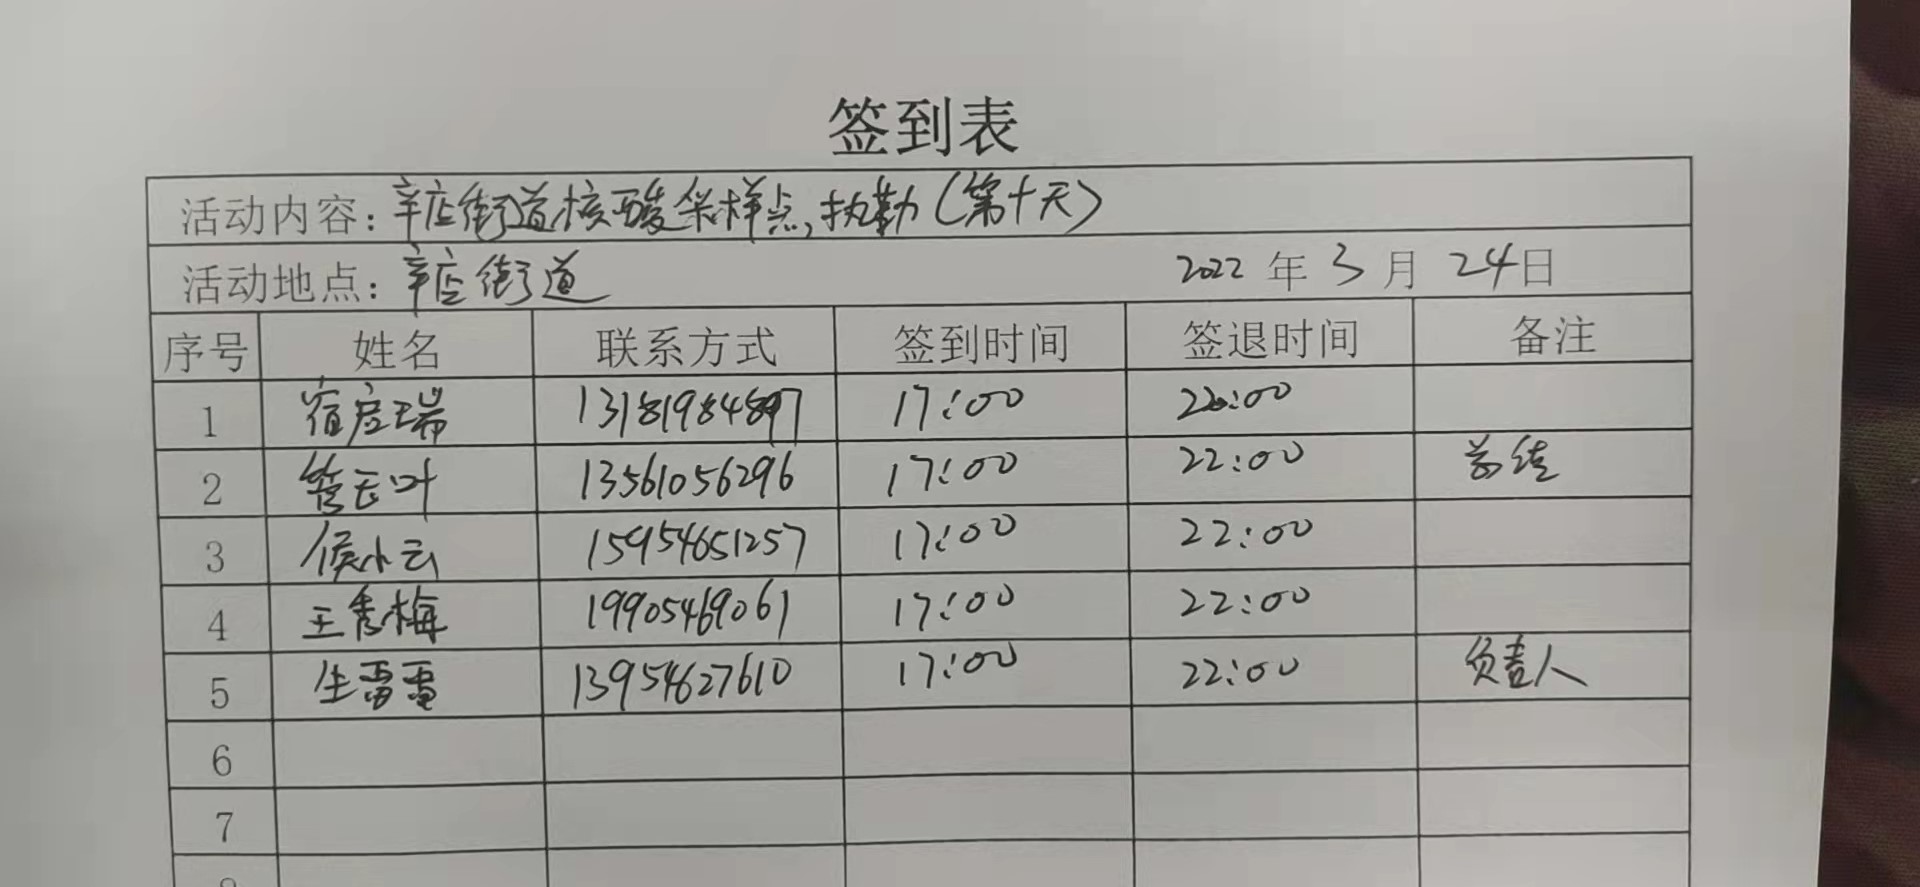 签到表
活动内容：辛店街道核酸采样点，执勤（第十天）
活动地点：辛店街道 2022 年 3 月 24日
序号 姓名 联系方式 签到时间 签退时间 备注
1 瑞 131819848 17:00 22:00
2 叶 13561056296 17:00 22:00
3 侯小云 15954651257 17:00 22:00
4 王秀梅 19905469061 17:00 22:00
5 生雷雷 13954627610 17:00 22:00 负责人
6
7